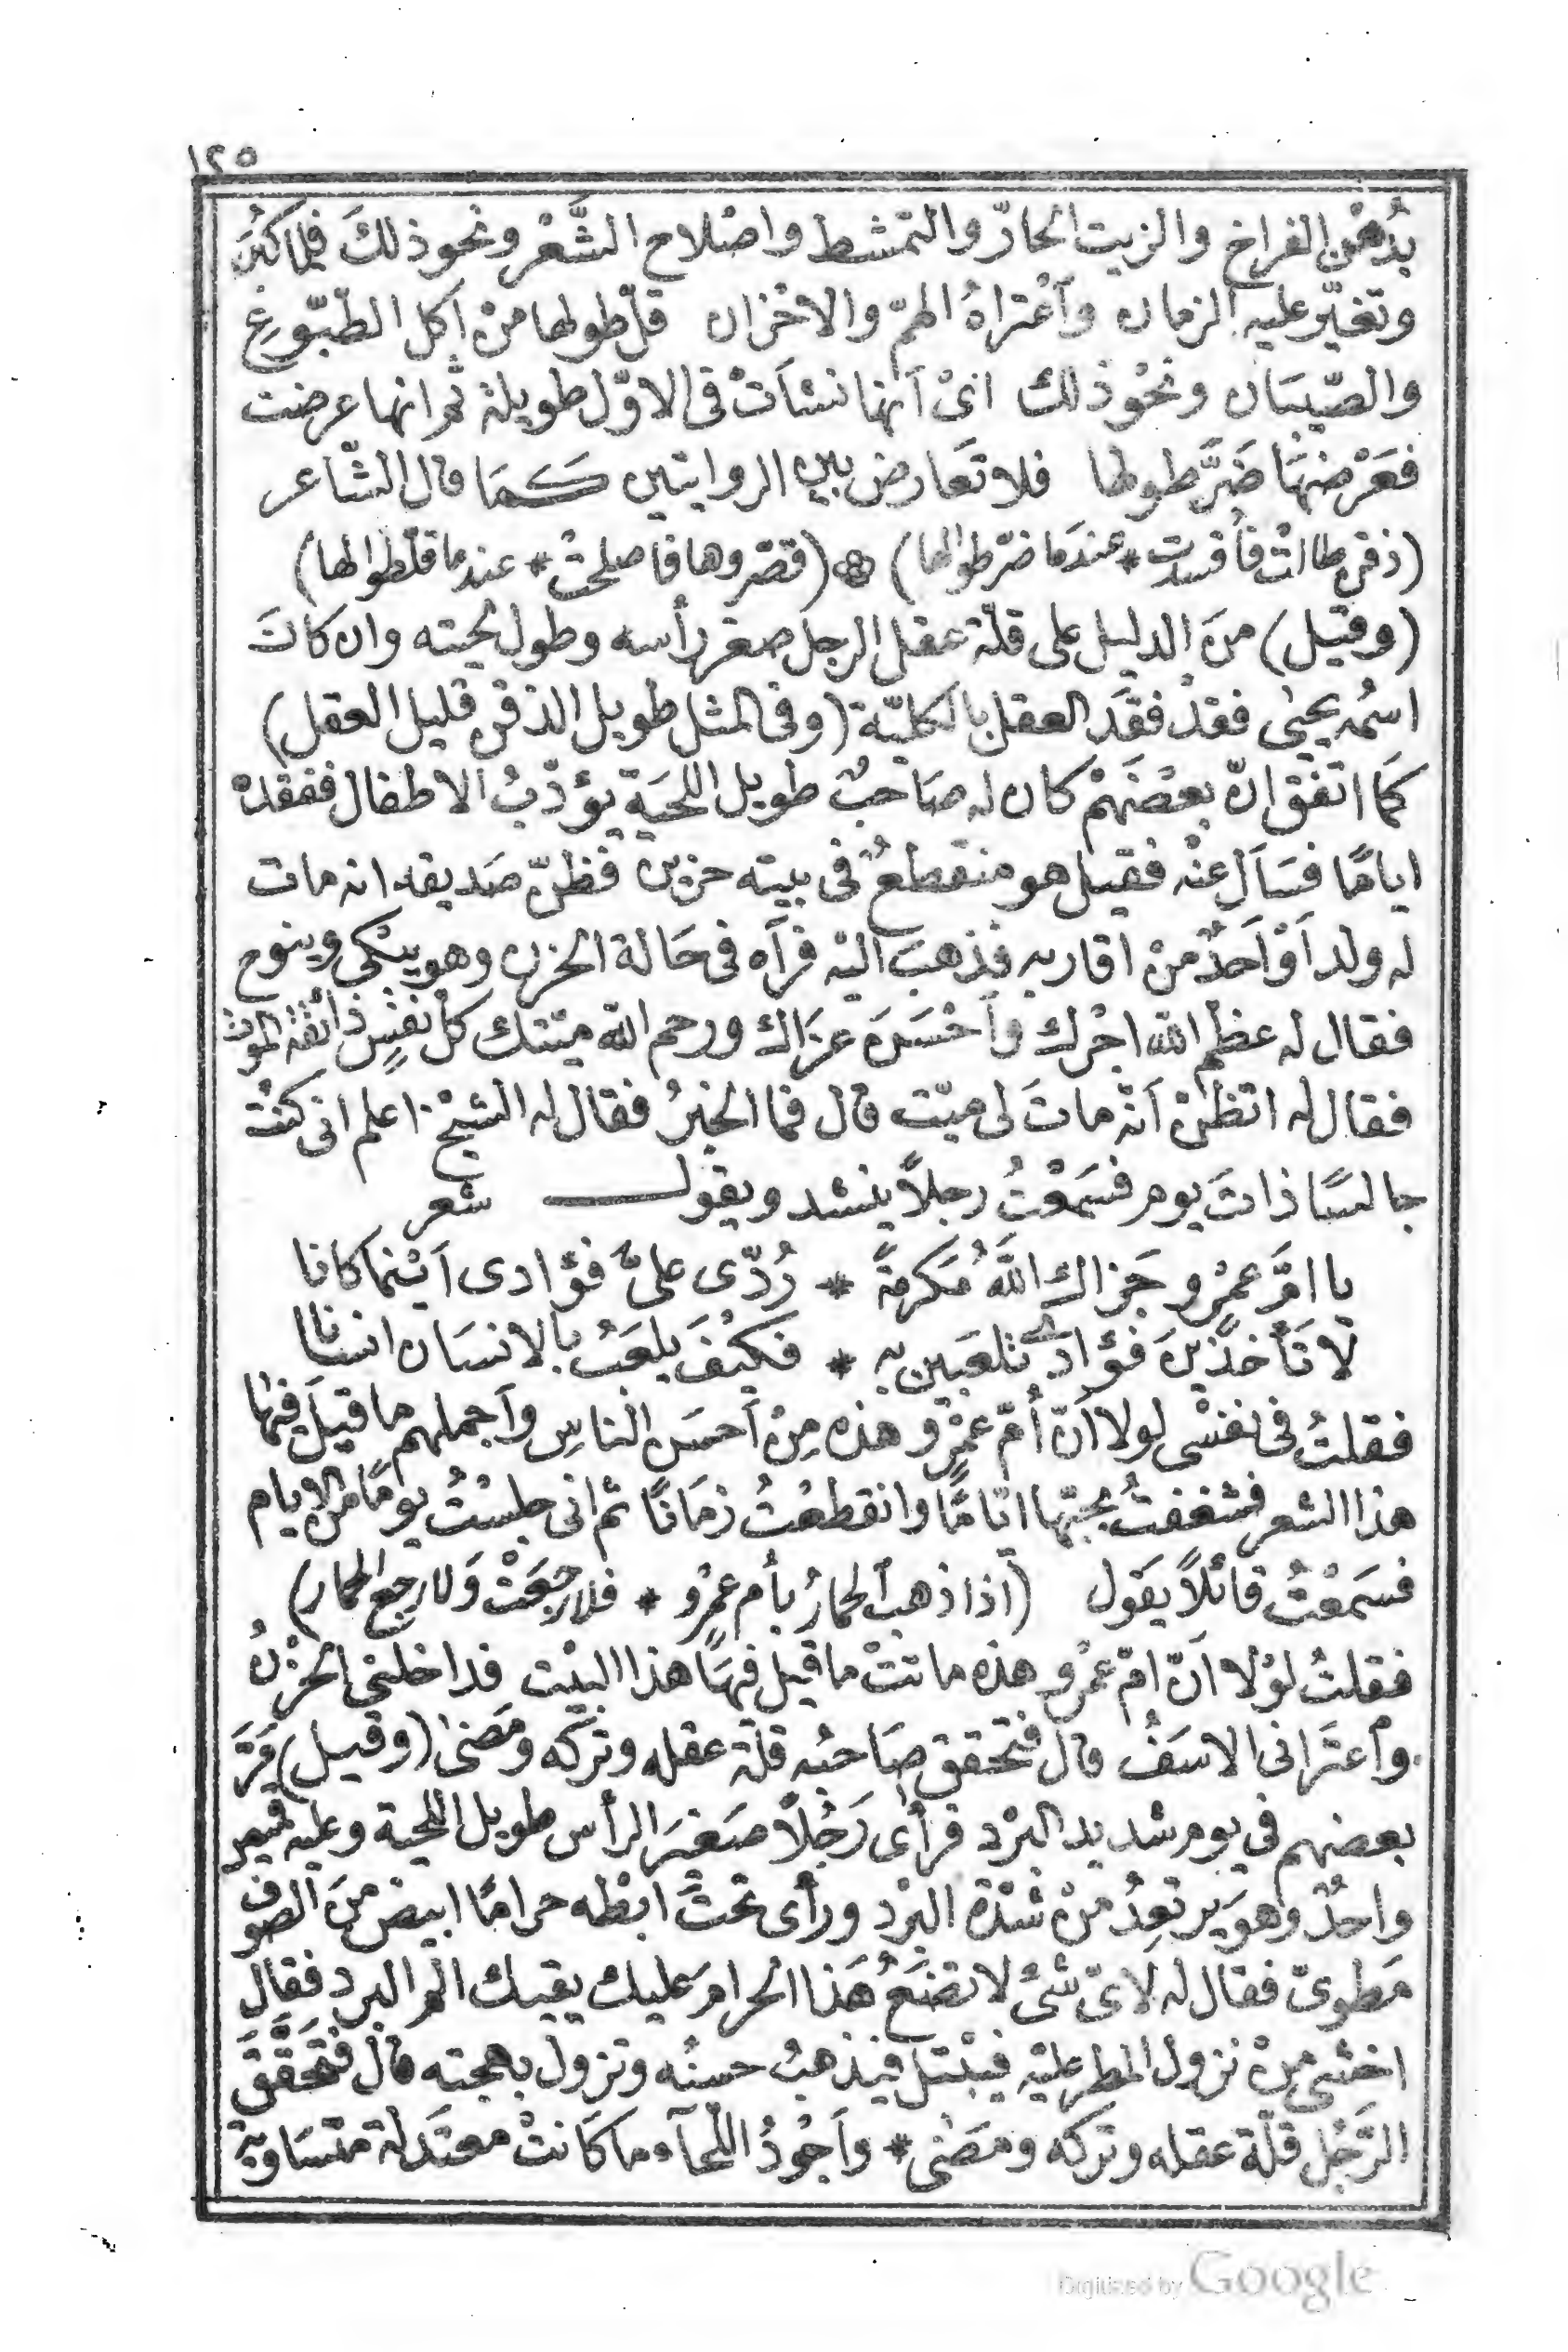 ١٢٥
بدُهن الفراخ والزيت الحارّ والتمّشط واصْلاح الشَّعْر ونحوذلكَ فلما كبُرَ
وتغيّر عليه الزمان وَاَعْتراهُ الهمّ والاحْزان قلّ طولها منْ اَكل الطّبّوعِ
والصّيبَان ونحْوذلك اىْ اَنها نشاَتْ فى الاوّل طويلة ثم انها عرضت
فعَرْضهَا ضَرَّ طولها فلا تعَارض بين الروايتين كَمَا قال الشّاعر
(ذقن طالتْ فأفسدت * عندَما ضرّ طولها) (قصّروها فاصلحتْ * عندما قلّ طولها)
(وقيل) منَ الدليل على قلّة عقل الرجل صغر رأسه وطول لحيته وان كانَ
اسمُه يحيٰى فقدْ فقَّدَ العقل بالكليّة (وفى المثل طويل الذقن قليل العقل)
كمَا اتفقَ انّ بعضَهمْ كان له صَاحبٌ طويل اللحيَة يؤدّبُ الاطفال ففقدهْ
اياَمًا فسَاَل عنْه فقيل هو منقطعٌ فى بيته حزين فظنّ صَديقه انه مات
له ولد اَوْ اَحدٌ منْ اقاربه فذهبَ اليْه فرآه فى حَالة الحزن وهو يبْكى وينوح
فقال له عظّم اللّه اجْرك وأحْسَن عزَاك ورحم اللّه ميّتك كلّ نفْسٍ ذائقة الموت
فقال له اتظنّ اَنّه ماتَ لى ميّت قال فما الخبرُ فقال له الشيْخ اعلم انى كنْتُ
جالسًا ذاتَ يوم فسَمعْتُ رجلاً ينشد ويقول شعر
يا امَّ عمْرو جَزاك اللّهُ مَكرمةً * رُدّى علىَّ فؤادى اَيْنما كانا
لا تَأخذينَ فؤادى تلعَبين به * فكيْفَ يلعَبُ بالانسَان انسانا
فقلتُ فى نفسْى لولا اَنّ أُمّ عمْرٍو هذه مِنْ اَحسَن الناسِ وأَجملهم ما قيلَ فيها
هذا الشعر فشغفتُ بحبّها ايّامًا وانقطعْتُ زمَانًا ثم انى جلسْتُ يومًا من الايام
فسَمعْتُ قائلاً يقَول (اذا ذهب الحمارُ بأم عمْرٍو * فلا رجعَتْ وَلا رجع الحمار)
فقلتُ لوْلا اَنّ امّ عمْرو هذه ماتتْ ما قيل فيهَا هذا البيْت فداخلنى الحزْنُ
وأعترَانى الاسَفُ قال فتحقق صَاحبُه قلّة عقله وتركه ومَضىٰ (وقيل) مَرَّ
بعضهم في يوم شديد البرْد فرأى رَجُلاً صَغيَر الرأس طويل اللحية وعليه قميص
واحدٌ وهوَ يرتعِدُ منْ شدّة البرْد ورأى تحْتَ ابْطه حرامًا ابيض منَ الصوف
مَطوىّ فقال له لاىّ شىْ لا تضَعُ هَذا الحرام عَليك يقيك الم البرد فقال
اخشى منْ نزول المطر عليْه فيبْتلّ فيَذهبُ حسنُه وتزول بهجته قال فتحَقَّقَ
الرَّجُل قلّة عقله وتركه ومضٰى * واَجْودُ اللّحآء ما كَانتْ معتَدلة متسَاوية